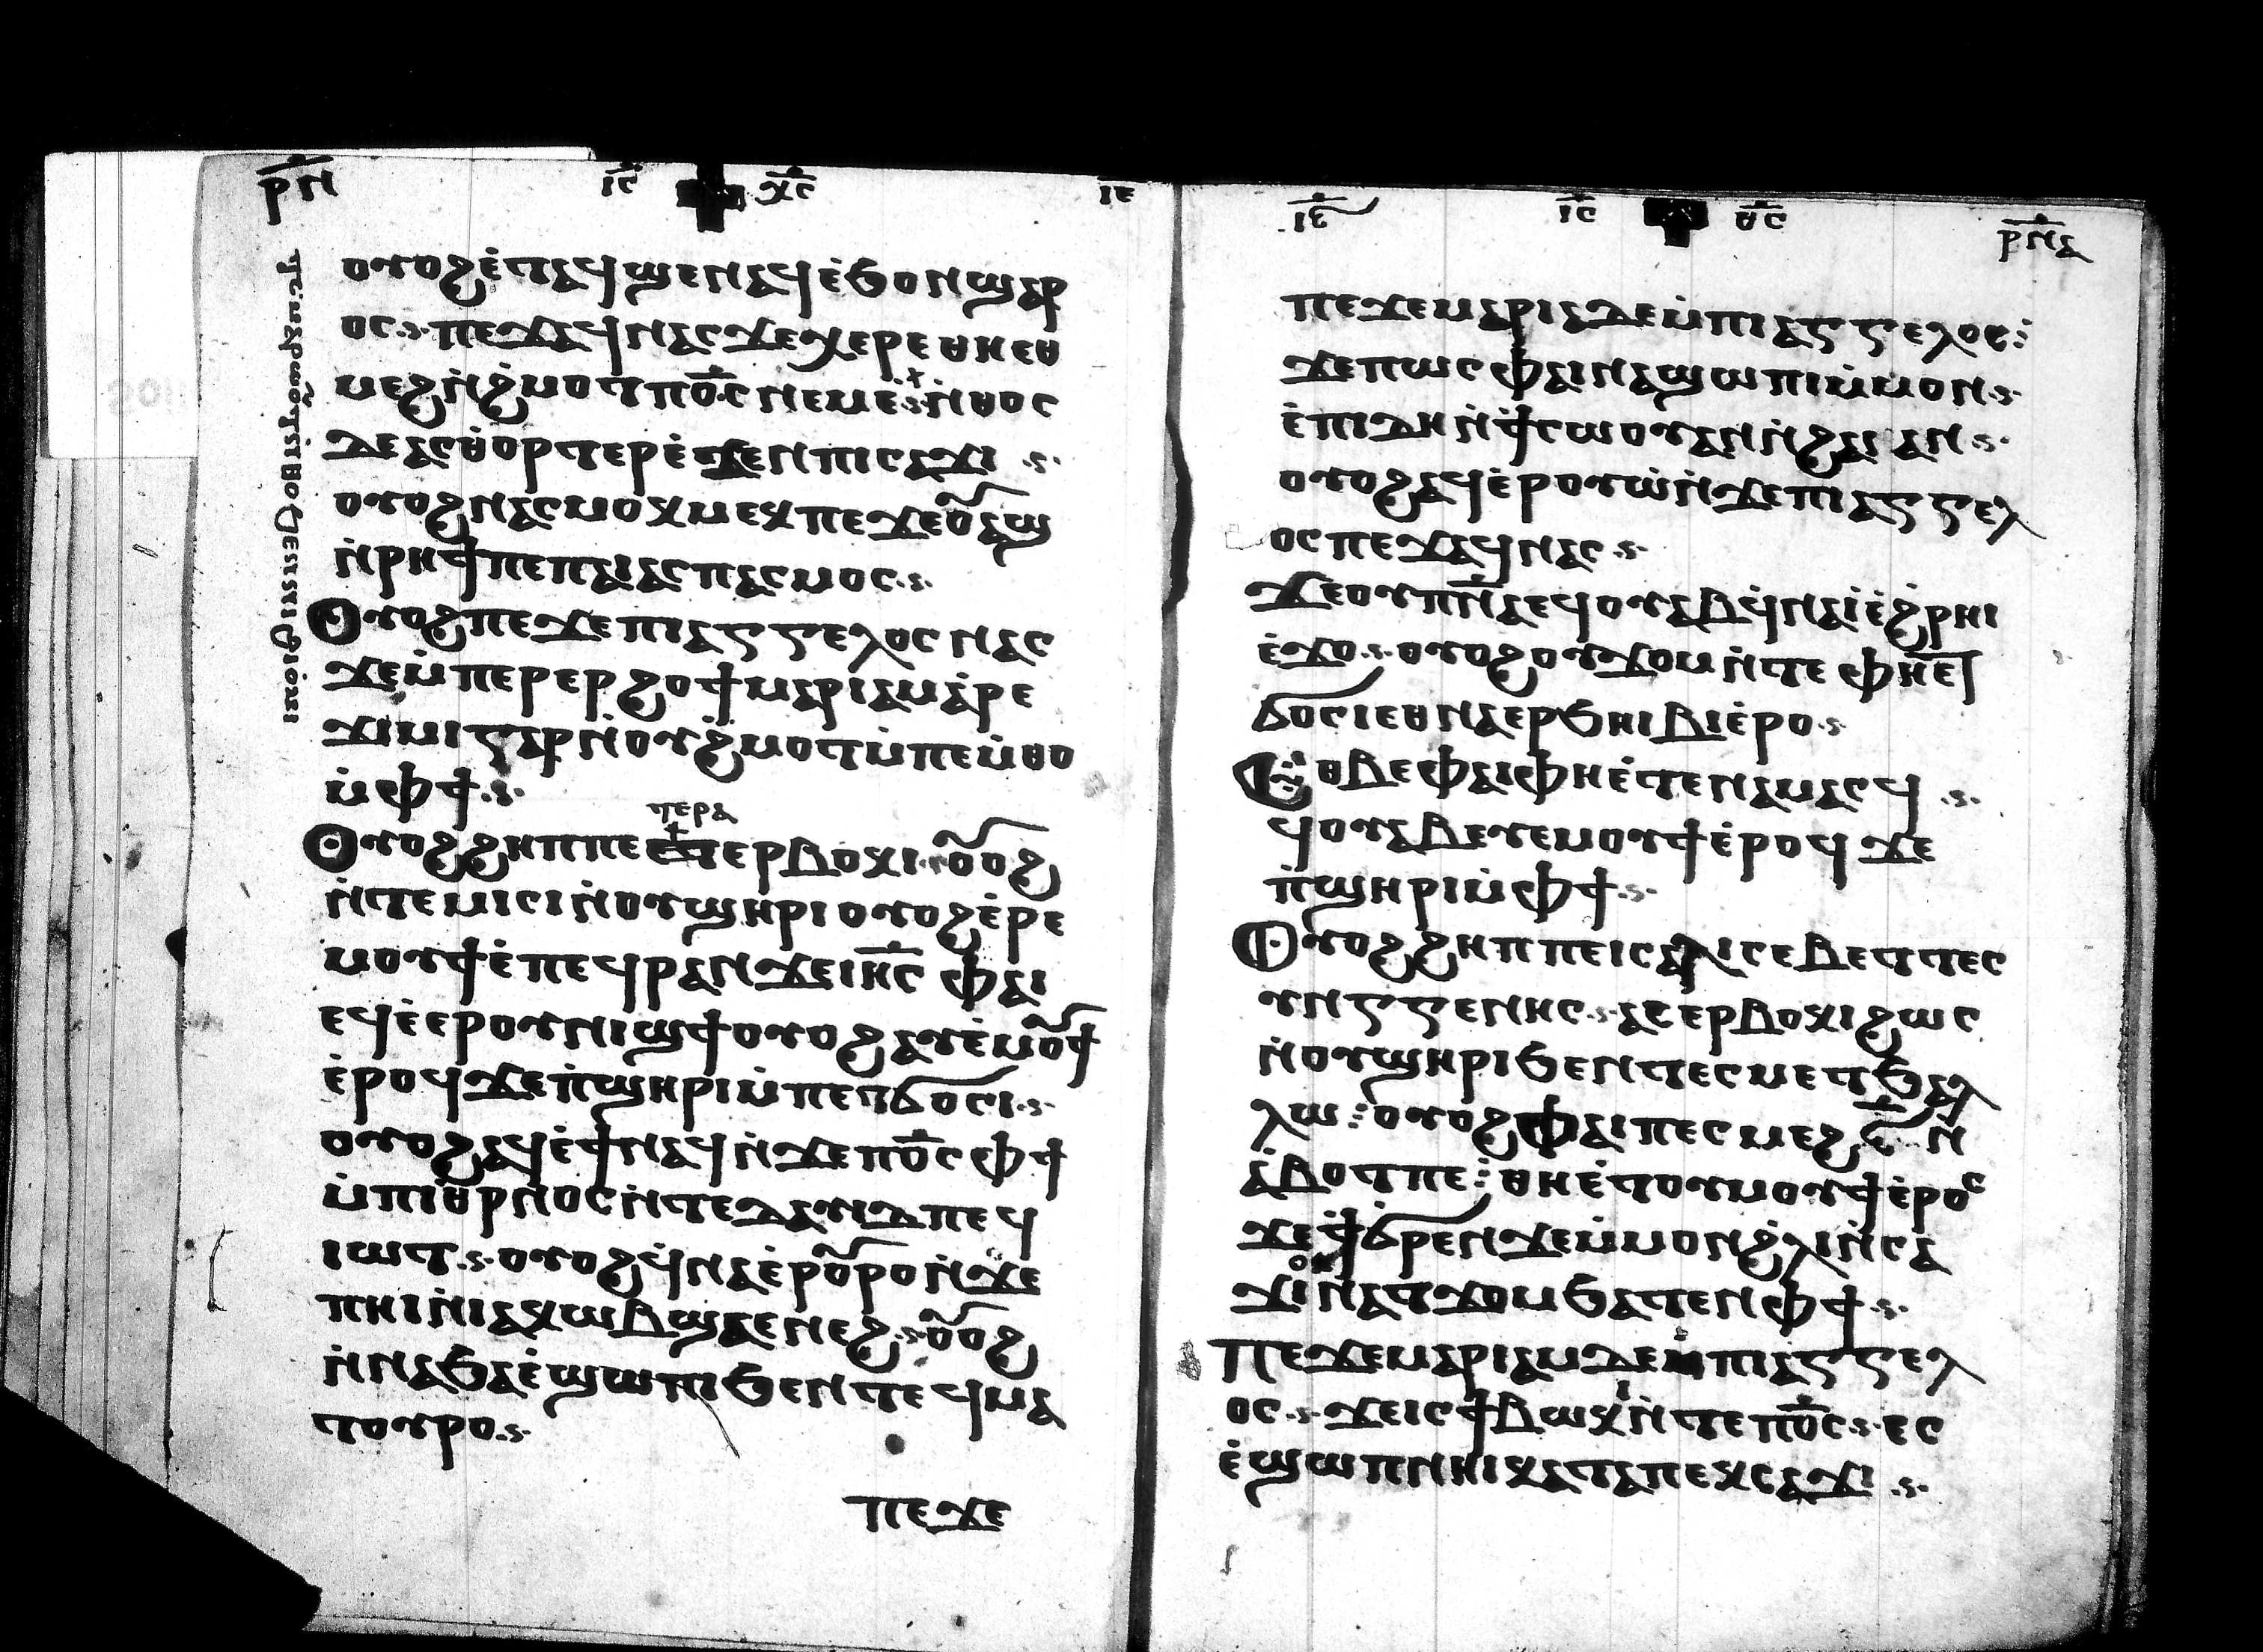 ⲣ̅ⲛ̅ ⲓ̅ⲥ̅ ⲭ̅ⲥ̅ ⲓ̅ⲉ̅
ⲟⲩⲟϩ ⲉ̀ⲧⲁϥϣⲉⲛⲁϥ ⲉ̀ϧⲟⲛ ϣⲁⲣ
ⲟⲥ ⲡⲉϫⲁϥ ⲛⲁⲥ ϫⲉ ⲭⲉⲣⲉ ⲑⲏⲉⲑ
ⲙⲉϩ ⲛ̀ϩ̀ⲙⲟⲧ ⲡⲟ̅ⲥ̅ ⲛⲉⲙⲉ ⲛ̀ⲑⲟⲥ
ⲇⲉ ⲁⲥϣ̀ⲑⲟⲣⲧⲉⲣ ⲉ̀ϫⲉⲛ ⲡⲓⲥⲁϫⲓ
ⲟⲩⲟϩ ⲛⲁⲥⲙⲟⲕⲙⲉⲕ ⲡⲉ ϫⲉ ⲟⲩⲁϣ
ⲛ̀ⲣⲏϯ ⲡⲉ ⲡⲁⲓⲁⲥⲡⲁⲥⲙⲟⲥ
Ⲟⲩⲟϩ ⲡⲉϫⲉ ⲡⲓⲁⲅⲅⲉⲗⲟⲥ ⲛⲁⲥ
ϫⲉ ⲙ̀ⲡⲉⲣⲉⲣϩⲟϯ ⲙⲁⲣⲓⲁⲙ ⲁ̀ⲣⲉ
ϫⲓⲙⲓ ⲅⲁⲣ ⲛ̀ⲟⲩϩ̀ⲙⲟⲧ ⲙ̀ⲡⲉⲙ̀ⲑⲟ
ⲙ̀ⲫϯ
ⲧⲉⲣⲁ
Ⲟⲩⲟϩ ϩⲏⲡⲡⲉ ⲉⲧⲉⲣⲃⲟⲕⲓ ⲟⲩⲟϩ
ⲛ̀ⲧⲉⲙⲓⲥⲓ ⲛ̀ⲟⲩϣⲏⲣⲓ ⲟⲩⲟϩ ⲉ̀ⲣⲉ
ⲙⲟⲩϯ ⲉ̀ⲡⲉϥⲣⲁⲛ ϫⲉ ⲓⲏ̅ⲥ̅ ⲫⲁⲓ
ⲉϥⲉ̀ⲉⲣ ⲟⲩⲛⲓϣϯ ⲟⲩⲟϩ ⲁⲩⲉ̀ⲙⲟⲩϯ
ⲉ̀ⲣⲟϥ ϫⲉ ⲡ̀ϣⲏⲣⲓ ⲙ̀ⲡⲉⲧϭⲟⲥⲓ
ⲟⲩⲟϩ ⲁϥⲉ̀ϯ ⲛⲁϥ ⲛ̀ϫⲉ ⲡⲟ̅ⲥ̅ ⲫϯ
ⲙ̀ⲡⲓⲑⲣⲛⲟⲥ ⲛ̀ⲧⲉ ⲇⲁⲩⲓⲇ ⲡⲉϥ
ⲓⲱⲧ ⲟⲩⲟϩ ϥ̀ⲛⲁⲉ̀ⲣⲟⲩⲣⲟ ⲛ̀ϫⲉ
ⲡⲏⲓ ⲛ̀ⲓⲁⲕⲱⲃ ϣⲁⲉⲛⲉϩ ⲟⲩⲟϩ
ⲛ̀ⲛⲁϧⲁⲉ̀ ϣⲱⲡⲓ ϧⲉⲛ ⲧⲉϥⲙⲁ
ⲧⲟⲩⲣⲟ
ⲡⲉϫⲉ
ⲓ̅ⲉ̅ ⲓ̅ⲥ̅ ⲑ̅ⲥ̅ ⲣ̅ⲛ̅ⲁ̅
ⲡⲉϫⲉ ⲙⲁⲣⲓⲁ ⲇⲉ ⲙ̀ⲡⲓⲁⲅⲅⲉⲗⲟⲥ
ϫⲉ ⲡⲱⲥ ⲫⲁⲓ ⲛⲁϣⲱⲡⲓ ⲙ̀ⲙⲟⲛ
ⲉ̀ⲡⲓⲇⲏ ⲛ̀ϯⲥⲱⲟⲩⲁⲛ ⲛ̀ϩⲁⲓ ⲁⲛ
ⲟⲩⲟϩ ⲁϥⲉ̀ⲣⲟⲩⲱ̀ ⲛ̀ϫⲉ ⲡⲓⲁⲅⲅⲉⲗ
ⲟⲥ ⲡⲉϫⲁϥ ⲛⲁⲥ
ϫⲉ ⲟⲩⲡ̅ⲛ̅ⲁ ⲉϥⲟⲩⲁⲃ ϥ̀ⲛⲁⲓ̀ ⲉ̀ϩ̀ⲣⲏⲓ
ⲉ̀ϫⲟ ⲟⲩⲟϩ ⲟⲩϫⲟⲙ ⲛ̀ⲧⲉ ⲫⲏⲉⲧ
ϭⲟⲥⲓ ⲉⲑⲛⲁⲉⲣϧⲏⲓⲃⲓ ⲉ̀ⲣⲟ
Ⲉⲑⲃⲉ ⲫⲁⲓ ⲫⲏⲉ̀ⲧⲉⲛⲁⲙⲁⲥϥ
ϥⲟⲩⲁⲃ ⲉⲩⲉⲙⲟⲩϯ ⲉ̀ⲣⲟϥ ϫⲉ
ⲡ̀ϣⲏⲣⲓ ⲙ̀ⲫϯ
Ⲟⲩⲟϩ ϩⲏⲡⲡⲉ ⲓⲥ ⲁ̀ⲗⲓⲥⲉⲃⲉⲧ ⲧⲉⲥ
ⲩⲛⲅⲅⲉⲛⲏⲥ ⲁⲥⲉⲣⲃⲟⲕⲓ ϩⲱⲥ
ⲛ̀ⲟⲩϣⲏⲣⲓ ϧⲉⲛ ⲧⲉⲥⲙⲉⲧϧⲉⲗ
ⲗⲱ ⲟⲩⲟϩ ⲫⲁⲓ ⲡⲉⲥⲙⲉϩ ⲋ̅ ⲛ
ⲁ̀ⲃⲟⲧ ⲡⲉ ⲑⲏⲉ̀ⲧⲟⲩⲙⲟⲩϯ ⲉ̀ⲣⲟⲥ
ϫⲉ ϯϭⲣⲏⲛ ϫⲉ ⲙ̀ⲙⲟⲛ ϩ̀ⲗⲓ ⲛ̀ⲥⲁ
ϫⲓ ⲟⲓ ⲛ̀ⲁⲧϫⲟⲙ ϧⲁⲧⲉⲛ ⲫϯ
Ⲡⲉϫⲉ ⲙⲁⲣⲓⲁⲙ ⲇⲉ ⲙ̀ⲡⲓⲁⲅⲅⲉⲗ
ⲟⲥ ϫⲉ ⲓⲥ ϯⲃⲱⲕⲓ ⲛ̀ⲧⲉ ⲡⲟ̅ⲥ̅ ⲉⲥ
ⲉ̀ϣⲱⲡ ⲛⲏⲓ ⲕⲁⲧⲁ ⲡⲉⲕⲥⲁϫⲓ